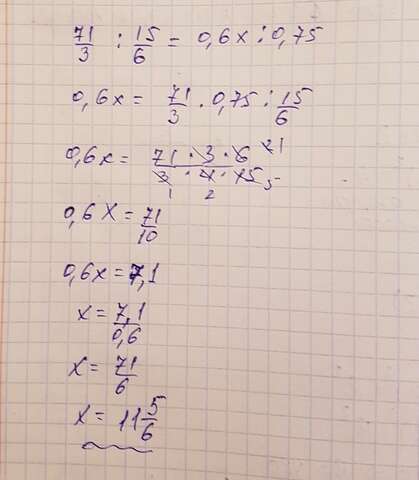 71/3 : 15/6 = 0,6x : 0,75
0,6x = 71/3 · 0,75 : 15/6
0,6x = 71 · 3 · 6 21 / 3 · 4 · 15 5
1 2
0,6X = 71/10
0,6x = 7,1
x = 7,1/0,6
x = 71/6
x = 11 5/6